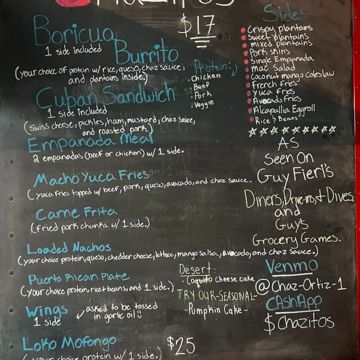 $17
Boricua
Burrito
1 side included
(your choice of protein w/ rice, queso, chaz sauce,
and plantains inside.)
Cuban Sandwich
1 side included
(swiss cheese, pickles, ham, mustard, chaz sauce,
and roasted pork.)
Empanada Meal
2 empanadas (beef or chicken) w/ 1 side.
Macho Yuca Fries
(yuca fries topped w/ beef, pork, queso, avocado, and chaz sauce.
Carne Frita
(fried pork chunks w/ 1 side.)
Loaded Nachos
(your choice protein, queso, cheddar cheese, lettuce, mango salsa, avocado, and chaz sauce.)
Puerto Rican Plate
(your choice protein, rice & beans, and 1 side.)
Wings
asked to be tossed
in garlic oil
1 side
Loko Mofongo
$25
(your choice protein w/ 1 side.)
Protein:
-Chicken
-Beef
-Pork
-Veggie
Desert:
-Coquito Cheese cake
TRY OUR SEASONAL
-Pumpkin Cake-
Sides:
Crispy plantains
Sweet plantains
mixed plantains
Pork skins
Single Empanada
Mac Salad
Coconut mango coleslaw
french fries
yuca fries
Avocado fries
Alcapurria Eggroll
Rice & Beans
AS
Seen On
Guy Fieri's
Diners, Drive-ins, & Dives
and
Guys
Grocery Games.
Venmo
@Chaz-Ortiz-1
CAShApp
$Chazitos